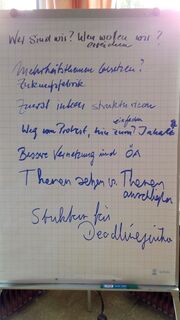 Wer sind wir? Wen wollen wir?
erreichen
Mehrheitsthemen besetzen?
Zukunftsfabrik
Zuerst intern strukturieren
einfachen
Weg vom Protest, hin zum? Inhalt
Bessere Vernetzung und ÖA
Themen setzen vs. Themen
Struktur für